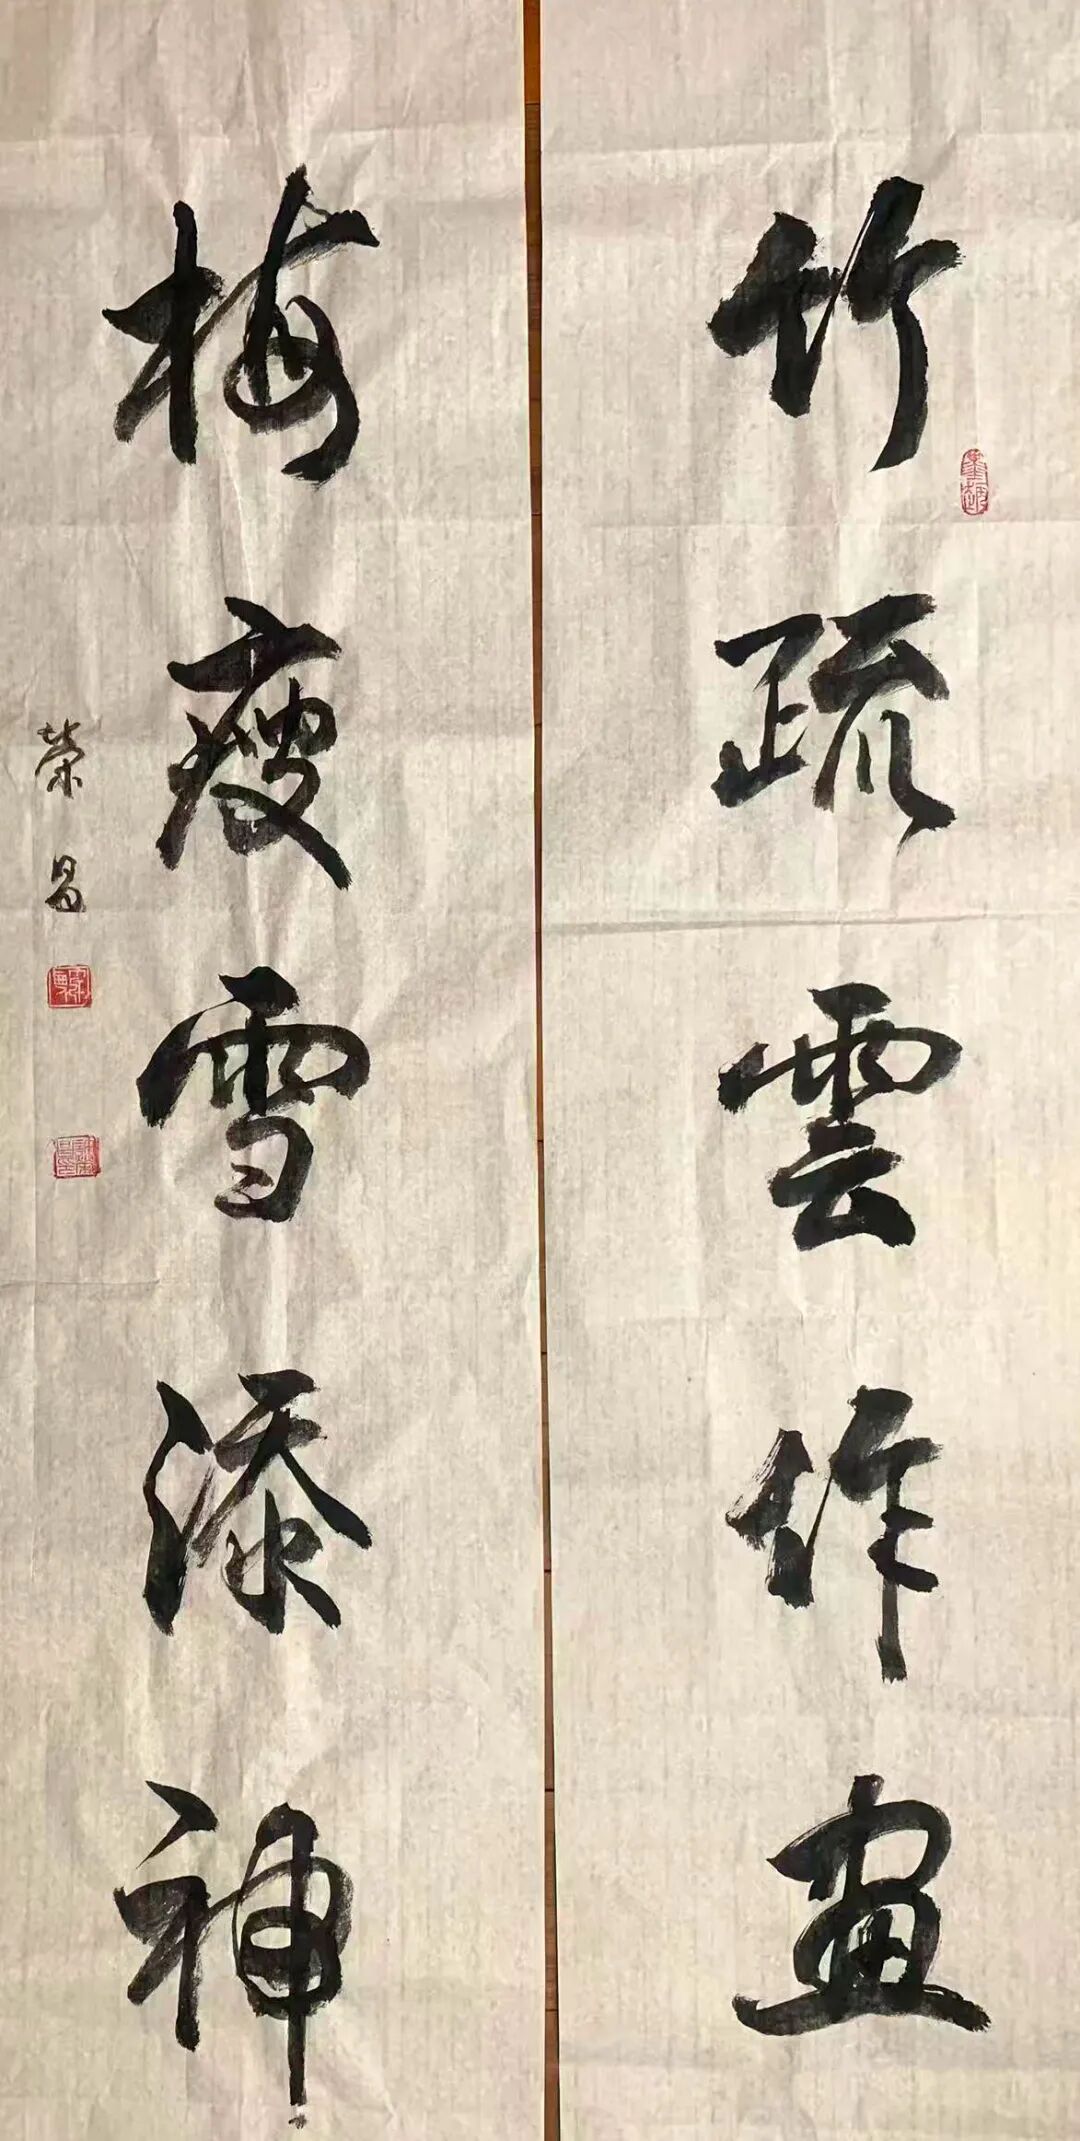 竹疏雲作畫
梅瘦雪添神
榮昌